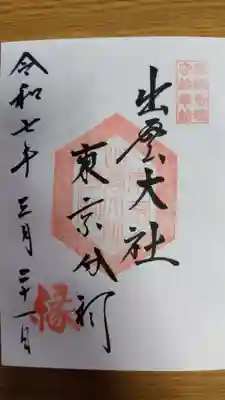 出雲大社
東京分祠
令和七年三月二十一日
縁